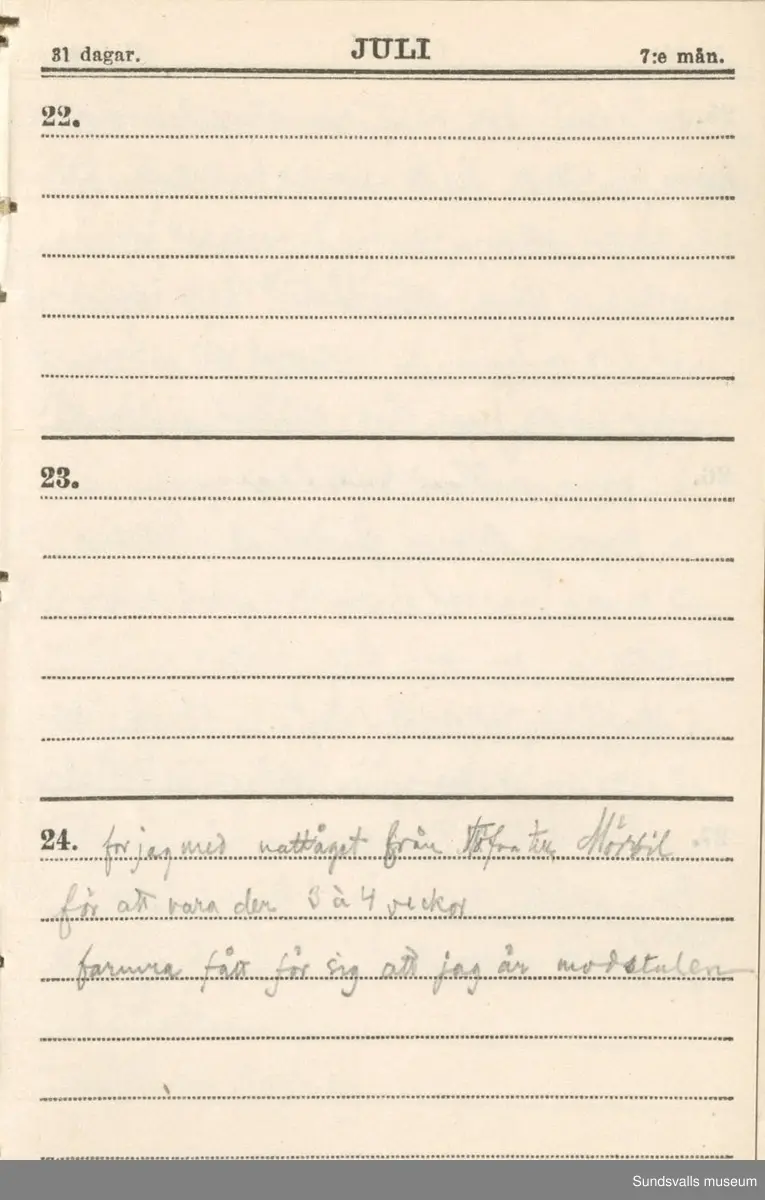 31 dagar. JULI 7:e mån.
22.
23.
24. for jag med nattåget från till Mörsil
för att vara der 3 à 4 veckor
fått för sig att jag är modstulen
Sundsvalls museum